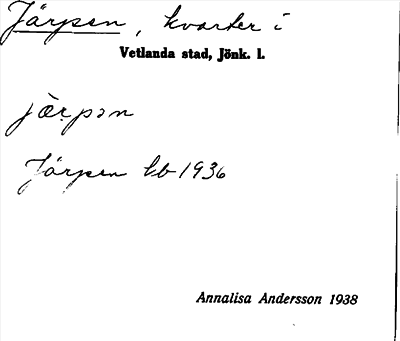 Järpen, kvarter i
Vetlanda stad, Jönk. l.
jæ̀r̥pən
Järpen kb 1936
Annalisa Andersson 1938